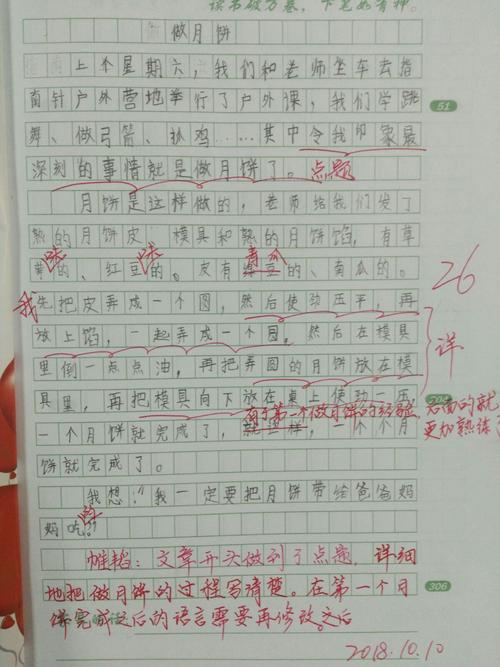 读书破万卷，下笔如有神。
做月饼
上个星期六，我们和老师坐车去指
南针户外营地举行了户外课，我们学跳
舞、做弓箭、抓鸡……其中令我印象最
深刻的事情就是做月饼了。点题
月饼是这样做的，老师给我们发了
熟的月饼皮、模具和熟的月饼馅，有草
莓味的、红豆味的。皮有绿豆的、南瓜的。
青瓜
我先把皮弄成一个圆，然后使劲压平，再
26
放上馅，一起弄成一个圆。然后在模具
详
里倒一点点油，再把弄圆的月饼放在模
具里，再把模具向下放在桌上使劲一压
有了第一个做月饼的经验，后面的就更加熟练了
一个月饼就完成了，就这样，一个个月
饼就完成了。
我想：“我一定要把月饼带给爸爸妈
妈吃。”
：文章开头做到了点题，详细
地把做月饼的过程写清楚。在第一个月
饼完成之后的语言需要再修改。之后
2018.10.10
51
306